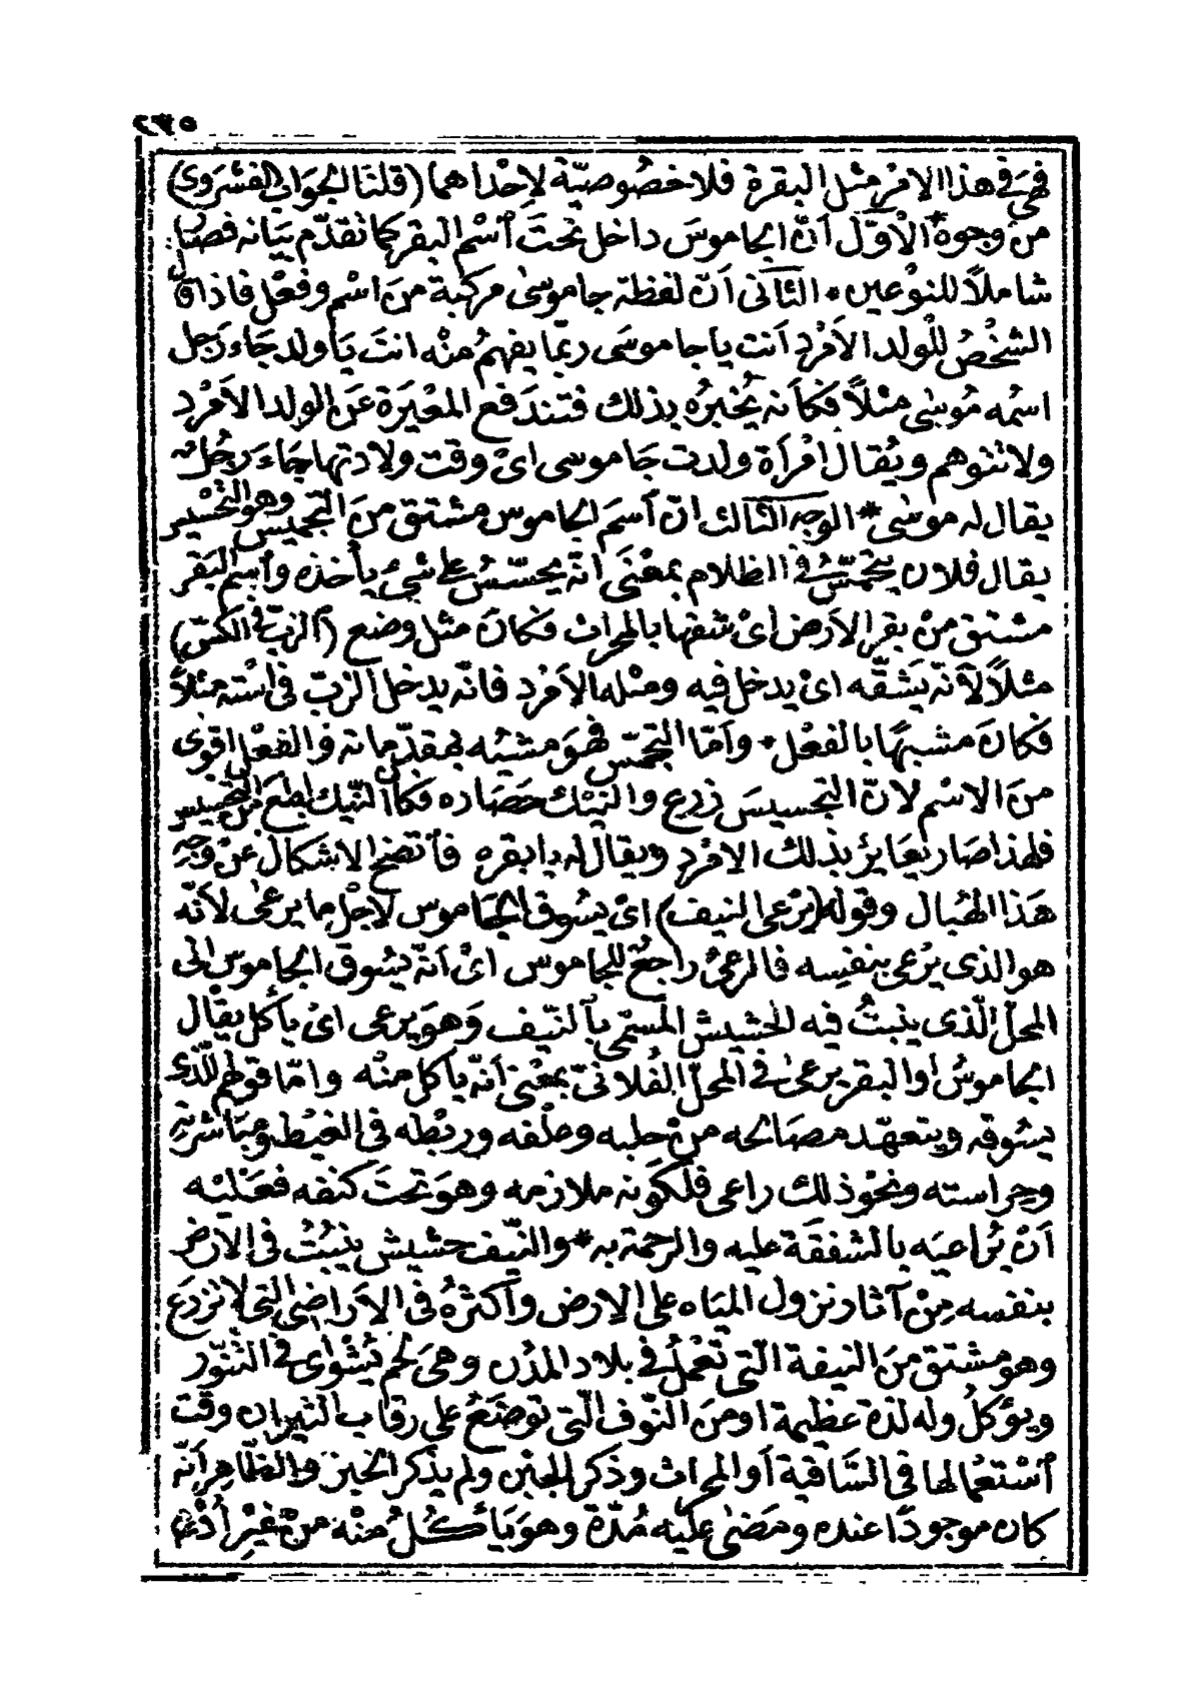 ٢٣٥
فهي في هذا الامر مثل البقرة فلا خصوصيّة لاِحْداهما (قلنا الجوابُ الفشروي)
من وجوهٌ الْأوّل أنّ الجاموسَ داخل تحتَ ٱسْم البقر كما تقدّم بَيَانه فصار
شاملاً للنوْعين * الثاني أنّ لفظة جاموسى مركبة منَ اسْم وفعْل فاذا قال
الشخْصُ للولد الأمْرد أنت ياجاموسَى ربّما يفهمُ منْه انتَ يَا ولد جَاءَ رَجل
اسمُه مُوسَى مثلاً فكأنه يُخبرُه بذلك فتندفع المعْيَرة عَن الولد الأمْرد
ولا تتوهم ويُقال امْرأة ولدت جَاموسى اىْ وقت ولادتها جَاءَ رجُلٌ
يقال له موسَى * الوجه الثالث انّ ٱسمَ الجاموس مشتق منَ التجميس وهو التحْسيس
يقال فلان يتجمّسُ في الظلام بمعْنَى انّه يحسّسُ على شيء يأخذه وٱسم البَقر
مشتق منْ بقر الارض اىْ شقها بالمحراث فكانَ مثل وضع (ٱلزبّ في الكسّ)
مثلاً لأنّه يَشقّه اىْ يدخل فيه ومثله الأمْرد فانّه يدخل الزبّ في اسْته مثلاً
فكانَ مشبهًا بالفعْل * وأمّا التجمّس فهوَ مشبّه بمقدّماته والفعْل اقوى
منَ الاسْم لانّ التجسيسَ زرع والنيْك حَصَاده فكأنّ النّيك ابلغ من التجسيس
فلهذا صَار يعَاير بذلك الامْرد ويقال له يا بقره فٱتضح الاشكال عنْ وجهِ
هَذا الهبال وقوله (يرْعى النيف) اىْ يسُوق الجَاموس لاجْل ما يرعَى لأنّه
هو الذى يرْعى بنفسه فالمرعىُ راجعٌ للجاموس اىْ أنّه يسُوق الجاموسَ الى
المحلّ الّذى ينبتُ فيه الحشيش المسمّى بٱلنّيف وَهوَ يرعى اىْ يأكل يقال
الجاموسُ اوالبقر يرعَى في المحلّ الفُلانىّ بمعْنى أنّه يأكل منْه وامّا قولهم للّذى
يسُوقه ويتعهّد مصَالحه منْ حلبه وعلْفه وربْطه في الغيْط ومبَاشرته
وحراسته ونحْو ذلك راعى فلكَوْنه ملازمه وهوَ تحتَ كنفه فعَليْه
أنْ يُراعيَه بالشفقَة عليه والرحمة به * والنّيف حشيش ينبُتُ في الارض
بنفسه مِنْ آثار نزول المَيَاه على الارض وأكثرُهُ في الأرَاضِى التى لا تزرَع
وهو مشتق منَ النيفة الّتي تعْملُ في بلاد المدُن وهىَ لحم يُشْوَاى في التّنّور
ويؤكلُ وله لذة عظيمة او منَ النّوف الّتي توضَعُ على رقاب الثيران وقت
ٱسْتعْمالها في السَّاقية أو المحراث وذكر الجبْن ولم يذكر الخبز والظّاهِر أنّه
كان موجودًا عنده ومَضى عليْه مُدّة وهوَ يَأكُلُ منْه منْ غيْر أدْم